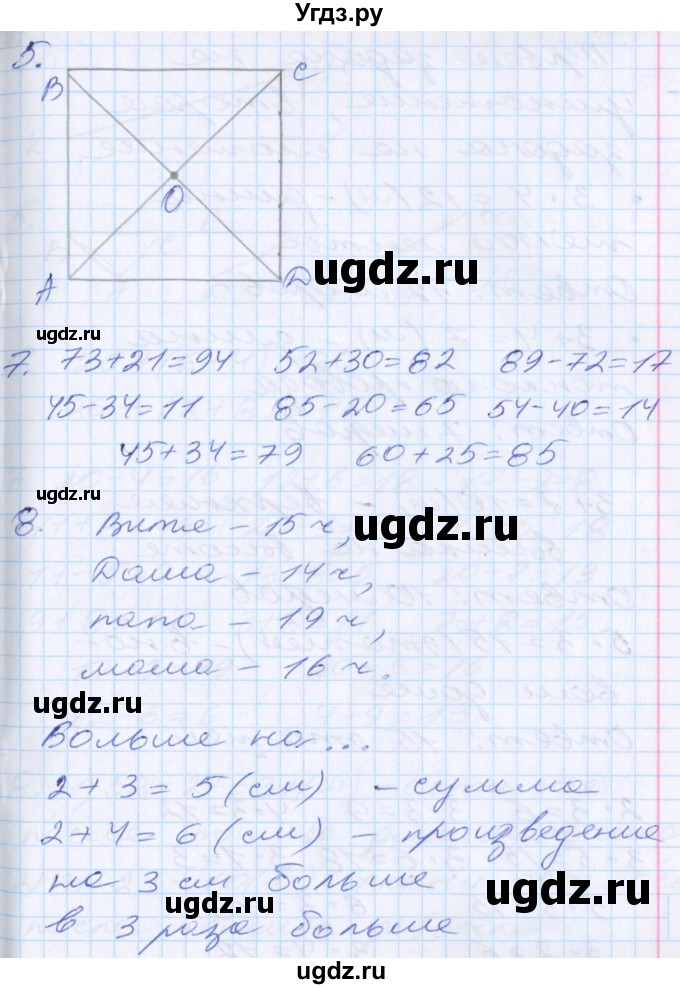 Угдз.ру
5.
B
C
O
A
D
ugdz.ru
ugdz.ru
7. 73+21=94 52+30=82 89-72=17
45-34=11 85-20=65 54-40=14
45+34=79 60+25=85
ugdz.ru
8. Витя - 15 ч,
ugdz.ru
Даша - 14 ч,
папа - 19 ч,
мама - 16 ч.
ugdz.ru
Больше на...
2+3=5(см) - сумма
2+4=6(см) - произведение
на 3 см больше
ugdz.ru
ugdz.ru
в 3 раза больше
ugdz.ru